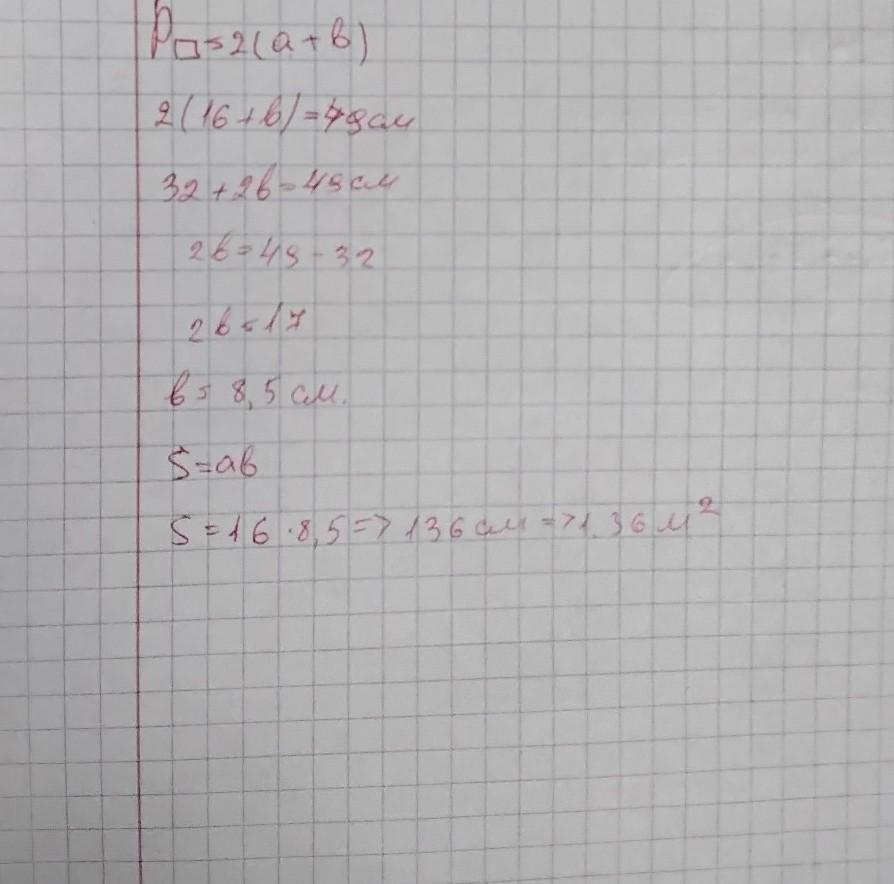 P□=2(a+b)
2(16+b)=49см
32+2b=49см
2b=49-32
2b=17
b=8,5 см.
S=ab
S=16·8,5=>136см=>1.36м²